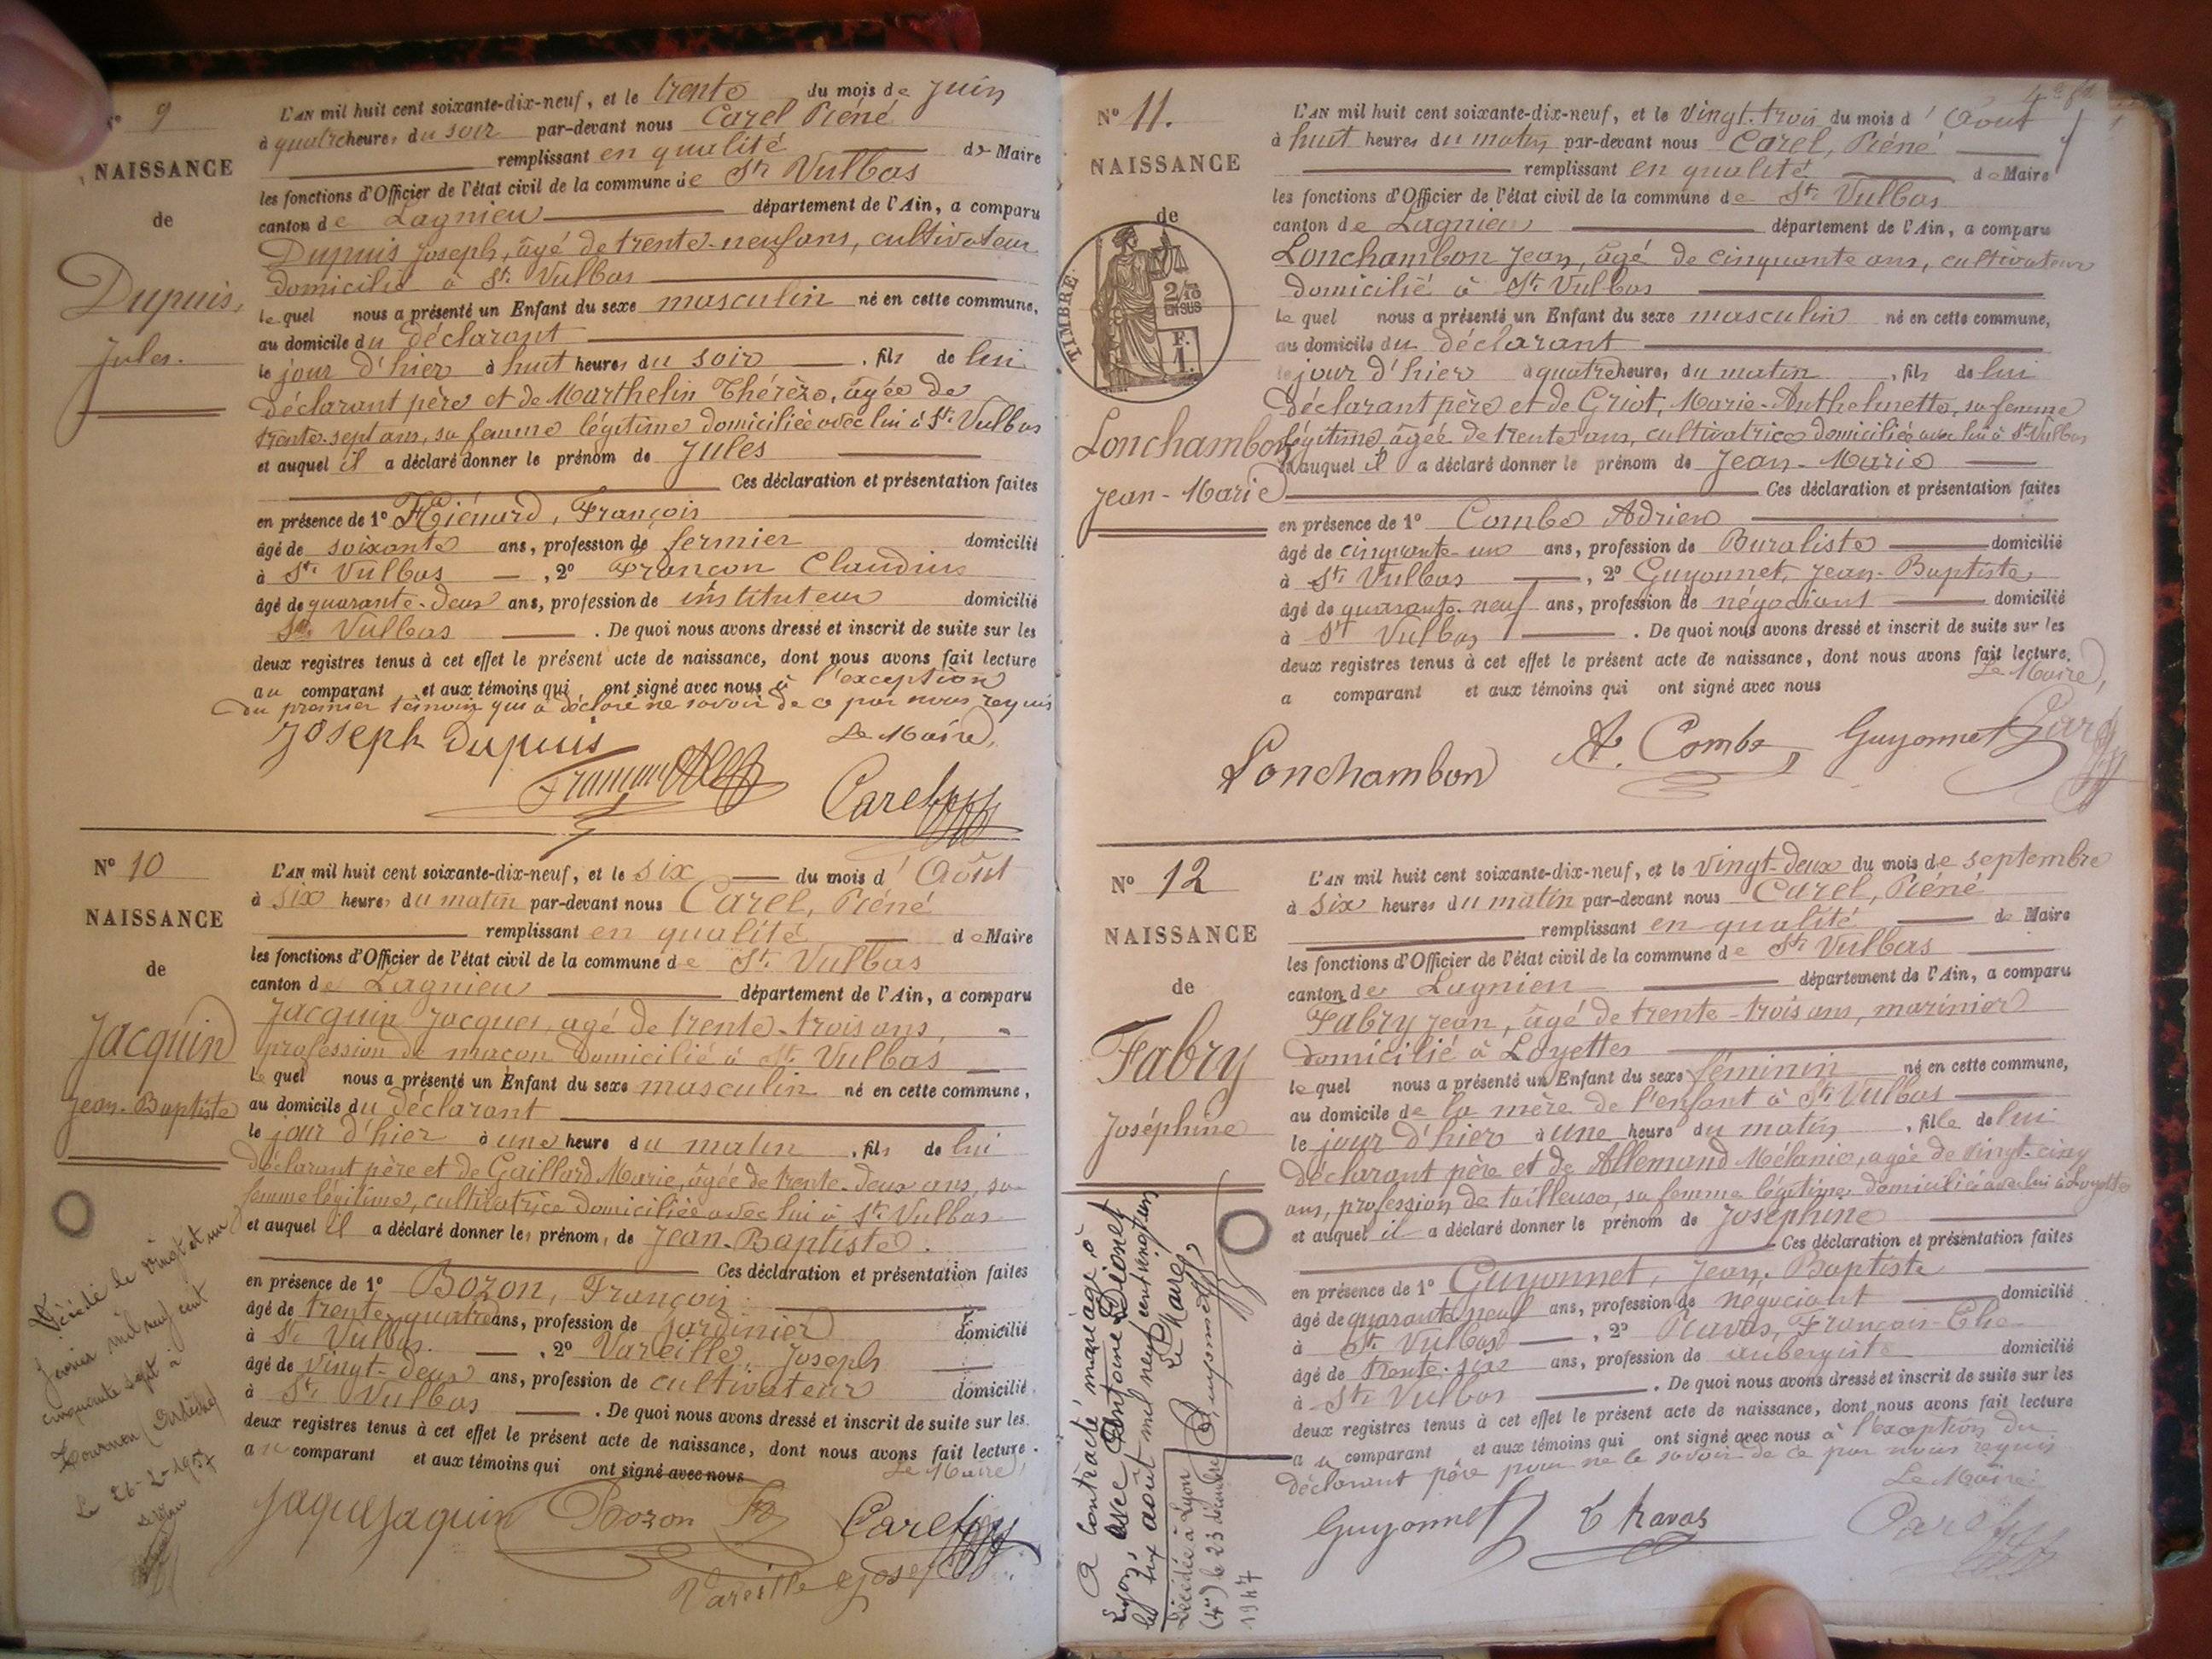 N° 9
NAISSANCE
de
Dupuis,
Jules.
L'AN mil huit cent soixante-dix-neuf, et le trente du mois de Juin
à quatre heures du soir par-devant nous Carel Réné
remplissant en qualité de Maire
les fonctions d'Officier de l'état civil de la commune de St. Vulbas
canton de Lagnieu département de l'Ain, a comparu
Dupuis Joseph, âgé de trente-neuf ans, cultivateur
domicilié à St. Vulbas
le quel nous a présenté un Enfant du sexe masculin né en cette commune,
au domicile du déclarant
le jour d'hier à huit heures du soir, fils de lui
déclarant père et de Marthelin Thérèze, âgée de
trente-sept ans, sa femme légitime domiciliée avec lui à St. Vulbas
et auquel il a déclaré donner le prénom de Jules
Ces déclaration et présentation faites
en présence de 1° François
âgé de soixante ans, profession de fermier domicilié
à St. Vulbas, 2° Françon Claudius
âgé de quarante-deux ans, profession de instituteur domicilié
St. Vulbas. De quoi nous avons dressé et inscrit de suite sur les
deux registres tenus à cet effet le présent acte de naissance, dont nous avons fait lecture
au comparant et aux témoins qui ont signé avec nous à l'exception
du premier témoin qui a déclaré ne savoir de ce par nous requis
Le Maire,
Joseph Dupuis
Carel
N° 10
NAISSANCE
de
Jacquin
Jean-Baptiste
L'AN mil huit cent soixante-dix-neuf, et le six du mois d'Août
à six heures du matin par-devant nous Carel, Réné
remplissant en qualité de Maire
les fonctions d'Officier de l'état civil de la commune de St. Vulbas
canton de Lagnieu département de l'Ain, a comparu
Jacquin Jacques, agé de trente-trois ans,
profession de maçon domicilié à St. Vulbas
le quel nous a présenté un Enfant du sexe masculin né en cette commune,
au domicile du déclarant
le jour d'hier à une heure du matin, fils de lui
déclarant père et de Gaillard Marie, âgée de trente-deux ans, sa
femme légitime, cultivatrice domiciliée avec lui à St. Vulbas
et auquel il a déclaré donner les prénoms de Jean-Baptiste.
Ces déclaration et présentation faites
en présence de 1° Bozon, François
âgé de trente-quatre ans, profession de jardinier domicilié
à St. Vulbas, 2° Vareille, Joseph
âgé de vingt-deux ans, profession de cultivateur domicilié
à St. Vulbas. De quoi nous avons dressé et inscrit de suite sur les
deux registres tenus à cet effet le présent acte de naissance, dont nous avons fait lecture
au comparant et aux témoins qui ont signé avec nous
Le Maire,
Jaque Jaquin Bozon Carel
Vareille Joseph
Décédé le vingt et un
Janvier mil neuf cent
cinquante sept à
Tournon (Ardèche)
Le 26-2-1957
N° 11.
NAISSANCE
de
TIMBRE
2/10
EN SUS
F.
1.
Lonchambon
Jean-Marie
L'AN mil huit cent soixante-dix-neuf, et le vingt-trois du mois d'Août
à huit heures du matin par-devant nous Carel, Réné
remplissant en qualité de Maire
les fonctions d'Officier de l'état civil de la commune de St. Vulbas
canton de Lagnieu département de l'Ain, a comparu
Lonchambon Jean, âgé de cinquante ans, cultivateur
domicilié à St. Vulbas
le quel nous a présenté un Enfant du sexe masculin né en cette commune,
au domicile du déclarant
le jour d'hier à quatre heures du matin, fils de lui
déclarant père et de Griot, Marie-Anthelmette, sa femme
légitime, âgée de trente ans, cultivatrice domiciliée avec lui à St. Vulbas
et auquel il a déclaré donner le prénom de Jean-Marie
Ces déclaration et présentation faites
en présence de 1° Combe Adrien
âgé de cinquante-un ans, profession de Buraliste domicilié
à St. Vulbas, 2° Guyonnet, Jean-Baptiste
âgé de quarante-neuf ans, profession de négociant domicilié
à St. Vulbas. De quoi nous avons dressé et inscrit de suite sur les
deux registres tenus à cet effet le présent acte de naissance, dont nous avons fait lecture.
a comparant et aux témoins qui ont signé avec nous
Le Maire,
Lonchambon A. Combe Guyonnet Carel
N° 12
NAISSANCE
de
Fabry
Joséphine
L'AN mil huit cent soixante-dix-neuf, et le vingt-deux du mois de septembre
à six heures du matin par-devant nous Carel, Réné
remplissant en qualité de Maire
les fonctions d'Officier de l'état civil de la commune de St. Vulbas
canton de Lagnieu département de l'Ain, a comparu
Fabry Jean, âgé de trente-trois ans, marinier
domicilié à Loyettes
le quel nous a présenté un Enfant du sexe féminin né en cette commune,
au domicile de la mère de l'enfant à St. Vulbas
le jour d'hier à une heure du matin, fille de lui
déclarant père et de Allemand Mélanie, agée de vingt-cinq
ans, profession de tailleuse, sa femme légitime domiciliée avec lui à Loyettes
et auquel il a déclaré donner le prénom de Joséphine
Ces déclaration et présentation faites
en présence de 1° Guyonnet, Jean-Baptiste
âgé de quarante neuf ans, profession de négociant domicilié
à St. Vulbas, 2° Ravas, François-
âgé de trente-six ans, profession de aubergiste domicilié
à St. Vulbas. De quoi nous avons dressé et inscrit de suite sur les
deux registres tenus à cet effet le présent acte de naissance, dont nous avons fait lecture
au comparant et aux témoins qui ont signé avec nous à l'exception du
déclarant père pour ne le savoir de ce par nous requis
Le Maire
Guyonnet Ravas Carel
A contracté mariage à
Lyon, avec Antoine Dionet
le six août mil neuf cent vingt un
Le Maire,
Guyonnet
Décédée à Lyon
(4e) le 23 décembre
1947